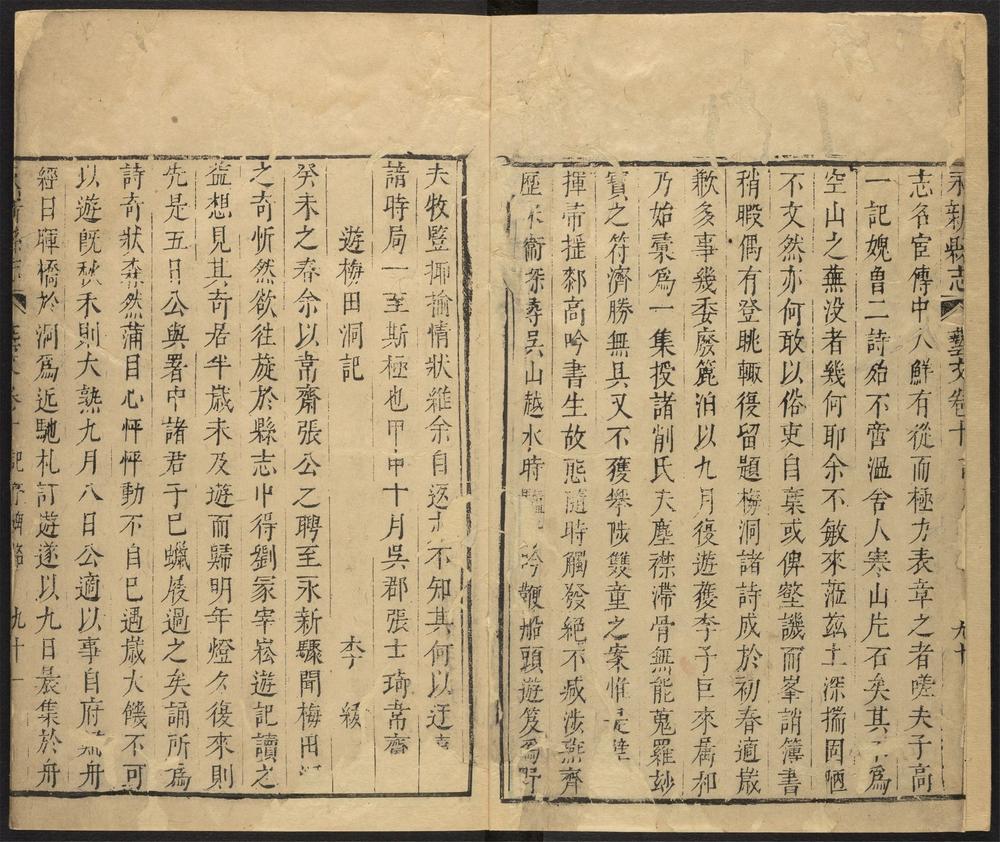 永新縣志 藝文卷十 九十
志名宦傳中八鮮有從而極力表章之者嗟夫子高
一記婉魯二詩殆不啻溫舍人寒山片石矣其不為
空山之蕪没者幾何耶余不敏來蒞茲土深揣固陋
不文然亦何敢以俗吏自葉或俾壑譏而峯誚簿書
稍暇偶有登眺輒復留題梅洞諸詩成於初春適嵗
歉多事幾委廢簏泊以九月復遊獲李子巨來屬和
乃始彙爲一集授諸削氏夫塵襟滯骨無能蒐羅玅
寶之符濟勝無具又不獲攀陟雙童之案惟是
揮帚搓鄴高吟書生故態隨時觸發絕不减涉燕齊
歴 衞探尋吳山越水時 吟鞭船頭遊笈爲野
夫牧豎揶揄情狀雖余自返亦不知其何以迂
諳時局一至斯極也甲申十月吳郡張士琦常齋
遊梅田洞記 李紱
癸未之春余以常齋張公之聘至永新驟聞梅田
之奇忻然欲往旋於縣志中得劉冢宰崧遊記讀之
益想見其奇居半嵗未及遊而歸明年燈夕復來則
先是五日公與署中諸君子巳蠟屐過之矣誦所爲
詩奇狀森然滿目心怦怦動不自巳遇嵗大饑不可
以遊旣秋禾則大熟九月八日公適以事自府 舟
經日暉橋於洞爲近馳札訂遊遂以九日晨集於舟
記序碑銘 九十一